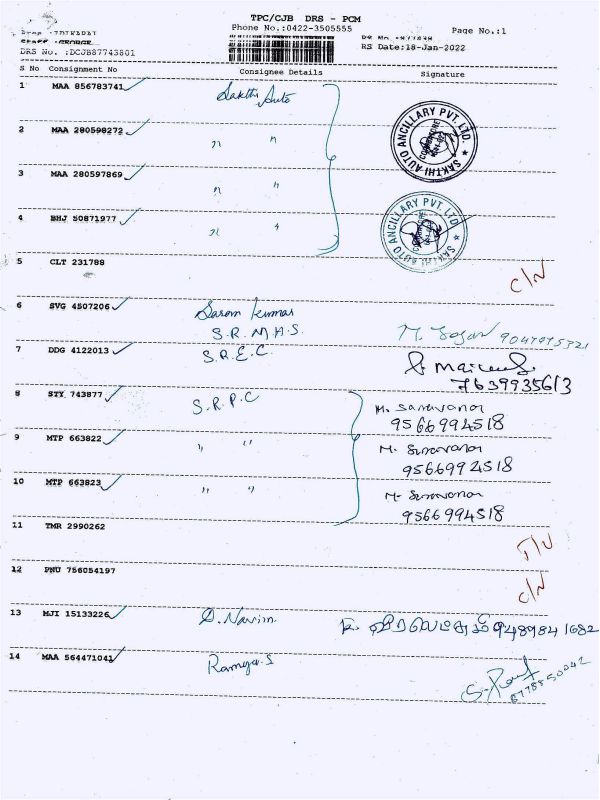 TPC/CJB DRS - PCM
Phone No.:0422-3505555
Page No.:1
DRS No. :DCJB87743801
RS Date:18-Jan-2022
S No Consignment No Consignee Details Signature
1 MAA 856783741 Sakthi Auto
SAKTHI AUTO ANCILLARY PVT. LTD.
2 MAA 280598272 " "
3 MAA 280597869 " "
4 BHJ 50871977 " "
SAKTHI AUTO ANCILLARY PVT. LTD
5 CLT 231788
C/N
6 SVG 4507206 Saran kumar
S.R.M.H.S.
7 DDG 4122013 S.R.E.C.
7639935613
8 STY 743877 S.R.P.C M. Saravanan
9566994518
9 MTP 663822 " " M. Saravanan
9566992518
10 MTP 663823 " " M. Saravanan
9566994518
11 TMR 2990262
12 PNU 756054197
C/N
13 MJI 15133226 S. Navin 9489841682
14 MAA 564471041 Ramya.S